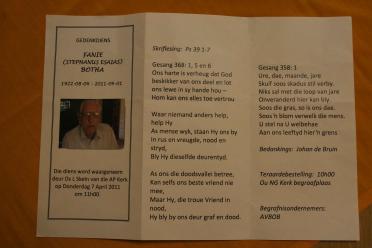 GEDENKDIENS
FANIE
(STEPHANUS ESAIAS)
BOTHA
1922-08-09 - 2011-04-01
Die diens word waargeneem
deur Ds L Stein van die AP Kerk
op Donderdag 7 April 2011
om 11h00.
Skriflesing: Ps 39 1-7
Gesang 368: 1, 5 en 6
Ons harte is verheug dat God
beskikker van ons deel en lot
ons lewe in sy hande hou –
Hom kan ons alles toe vertrou
Waar niemand anders help,
help Hy
As mense wyk, staan Hy ons by
In rus en vreugde, nood en
stryd,
Bly Hy dieselfde deurentyd.
As ons die doodsvallei betree,
Kan selfs ons beste vriend nie
mee,
Maar Hy, die troue Vriend in
nood,
Hy bly by ons deur graf en dood.
Gesang 358: 1
Ure, dae, maande, jare
Skuif soos skadus stil verby.
Niks sal met die loop van jare
Onveranderd hier kan bly.
Soos die gras, so is ons dae.
Soos 'n blom verwelk die mens.
U stel na U welbehae
Aan ons leeftyd hier 'n grens
Bedankings: Johan de Bruin
Teraardebestelling: 10h00
Ou NG Kerk begraafplaas
Begrafnisondernemers:
AVBOB